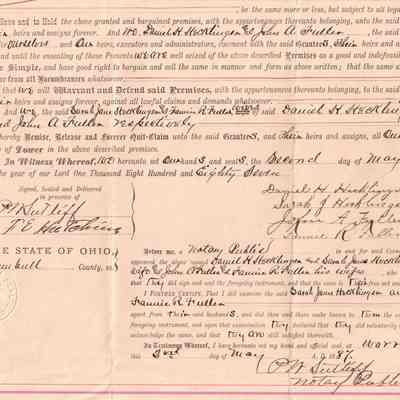 , be the same more or less, but subject to all legal
Have and to Hold the above granted and bargained premises, with the appurtenances thereunto belonging, unto the said
heirs and assigns forever. And We, Daniel H Hecklinger & John A. Fuller
Ourselves and Our heirs, executors and administrators, covenant with the said Grantees, their heirs and
until the ensealing of these Presents we are well seized of the above described Premises as a good and indefeasible
Fee Simple, and have good right to bargain and sell the same in manner and form as above written; that the same
from all Incumbrances whatsoever
that we will Warrant and Defend said Premises, with the appurtenances thereunto belonging, to the said
heirs and assigns forever, against all lawful claims and demands whatsoever.
And We, the said Sarah Jane Hecklinger & Fannie R. Fuller wives of said Daniel H. Hecklinger
and John A Fuller respectively
hereby Remise, Release and Forever Quit-Claim unto the said Grantees, and Their heirs and assigns, all Our
of Dower in the above described premises.
In Witness Whereof, We hereunto set Our hands and seals, the Second day of May
the year of our Lord One Thousand Eight Hundred and Eighty Seven
Signed, Sealed and Delivered
in presence of
P W Sutliff
T. E. Hutchins
Daniel H. Hecklinger
Sarah J Hecklinger
John A. Fuller
Fannie R. Fuller
THE STATE OF OHIO,
County, ss.
Before me, a Notary Public
appeared the above named Daniel H Hecklinger and Sarah Jane Hecklinger
wife & John A Fuller & Fannie R. Fuller his wife
that they did sign and seal the foregoing instrument, and that the same is their
I Further Certify, That I did examine the said Sarah Jane Hecklinger and
Fannie R. Fuller
apart from their said husbands, and did then and there make known to them the
foregoing instrument, and upon that examination they declared that they did voluntarily
acknowledge the same, and that they are still satisfied therewith.
In Testimony Whereof, I have hereunto set my hand and official seal, at Warren
this 2nd day of May A. D. 1887.
P. W. Sutliff
Notary Public